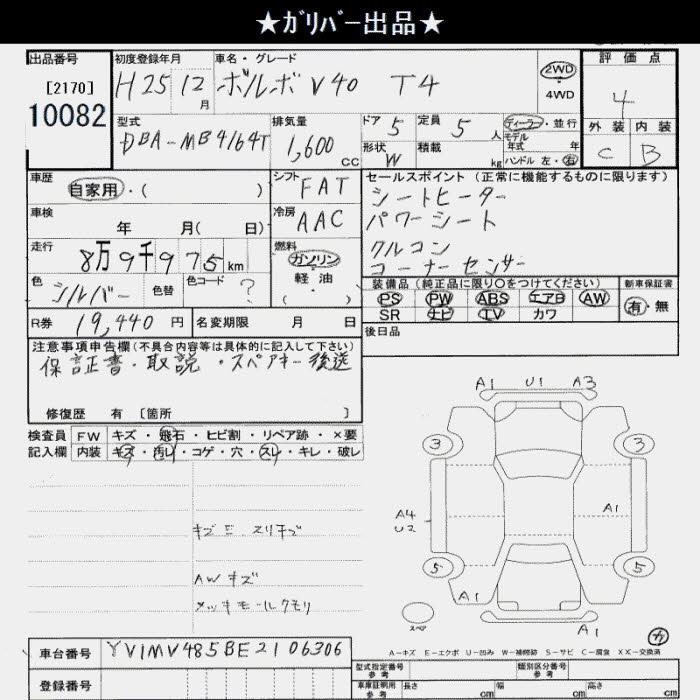 ★ｶﾞﾘﾊﾞｰ出品★
出品番号
[2170]
10082
初度登録年月
H25 12月
車名・グレード
ボルボ V40 T4
2WD
4WD
評価点
4
外装 内装
C B
型式
DBA-MB4164T
排気量
1,600 CC
ドア 5
定員 5人
形状 W
積載 kg
ディーラー・並行
モデル年式 年
ハンドル 左・右
車歴
自家用・( )
シフト FAT
冷房 AAC
車検
年 月( 日)
走行
8万9千975km
燃料
ガソリン
・
軽油
( )
色 シルバー
色替
色コード ?
R券 19,440円
名変期限 月 日
セールスポイント (正常に機能するものに限ります)
シートヒーター
パワーシート
クルコン
コーナーセンサー
装備品(純正品に限り○をつけてください)
PS PW ABS エアB AW
SR ナビ TV カワ
新車保証書
有・無
後日品
注意事項申告欄(不具合内容等は具体的に記入して下さい)
保証書・取説・スペアキー後送
修復歴 有 [箇所 ]
検査員
記入欄
FW キズ・飛石・ヒビ割・リペア跡・×要
内装 キズ・汚レ・コゲ・穴・スレ・キレ・破レ
AWキズ
メッキモールクモリ
A1 U1 A3
3 3
A4
U2
A1
5 5
A1
A1
スペア
A-キズ E-エクボ U-凹み W-補修跡 S-サビ C-腐食 XX-交換済
車台番号 YV1MV485BE2106306
登録番号
型式指定番号
参考
類別区分番号
参考
車庫証明用
参考
長さ cm 幅 cm 高さ cm